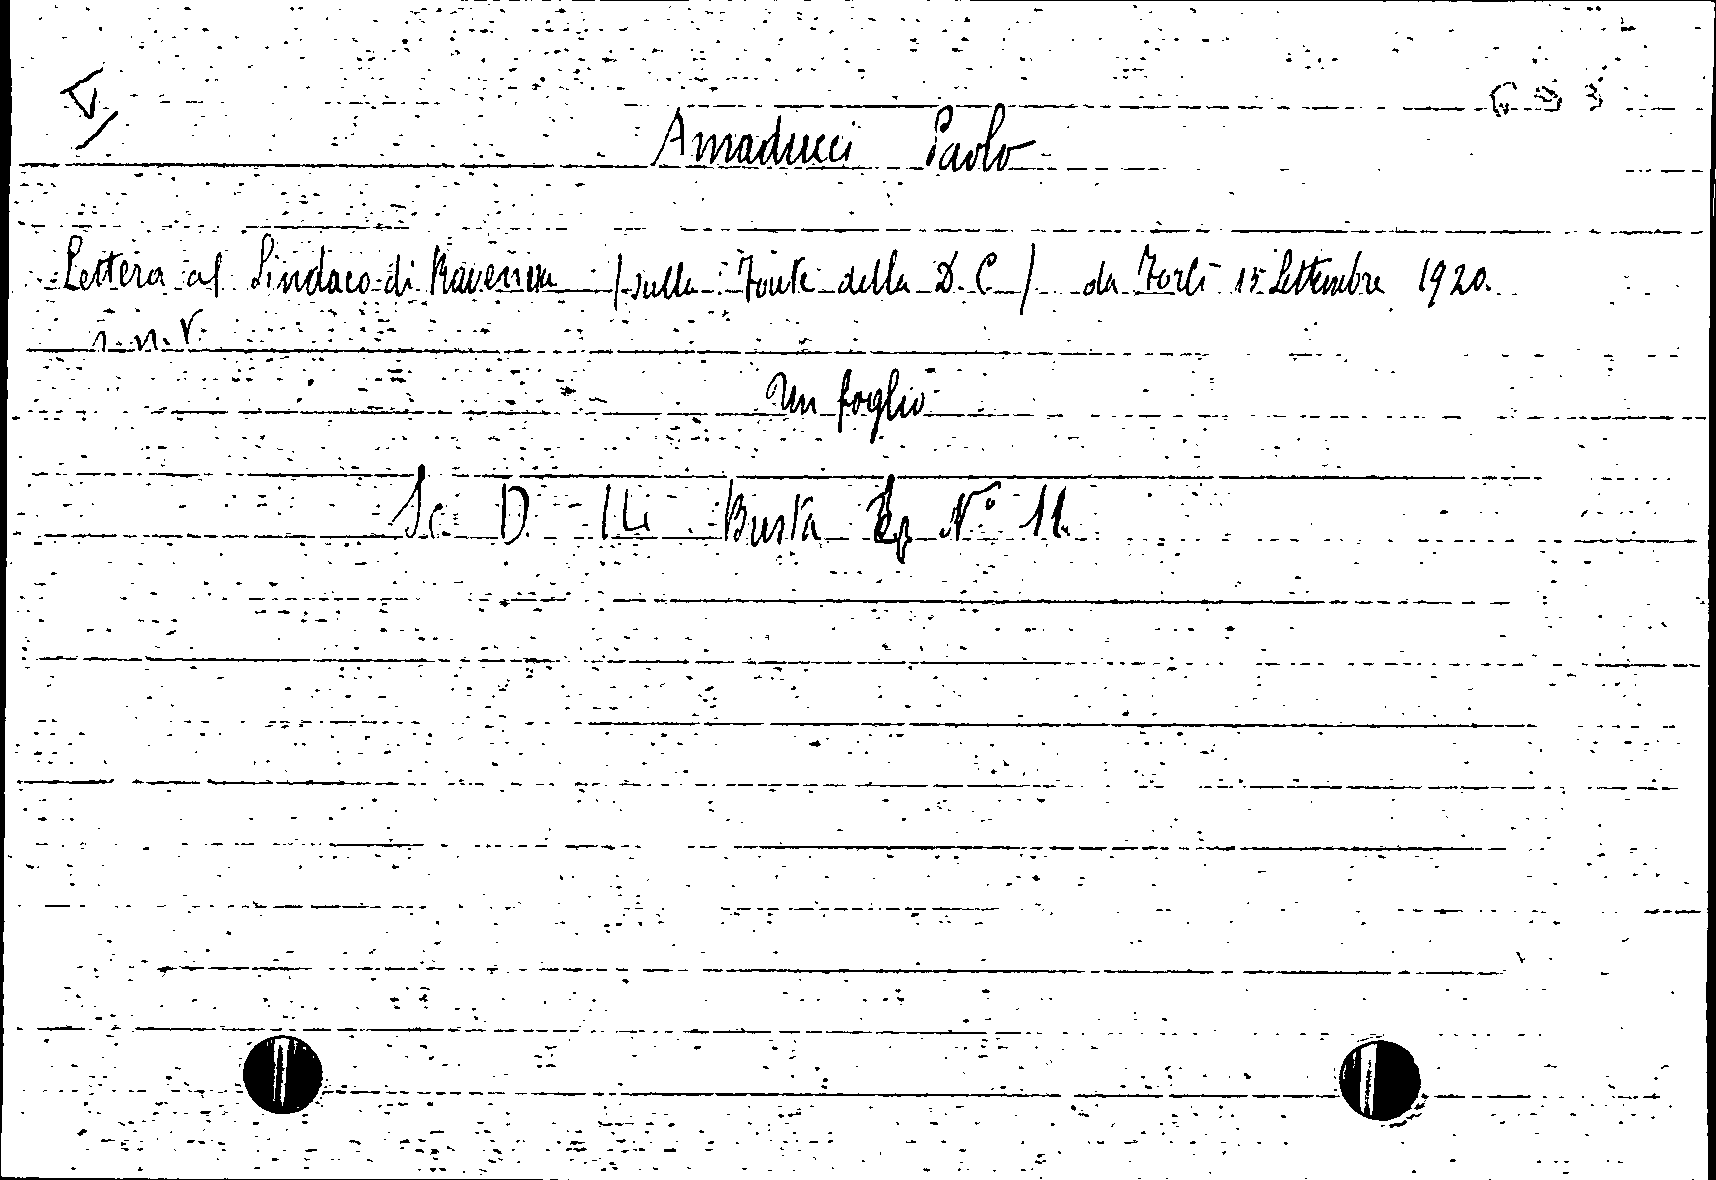 Amaducci Paolo
Lettera al Sindaco di Ravenna (sulla Fonte della D. C) da Forlì 15 Settembre 1920.
Un foglio
Sc. D. Busta N° 11.